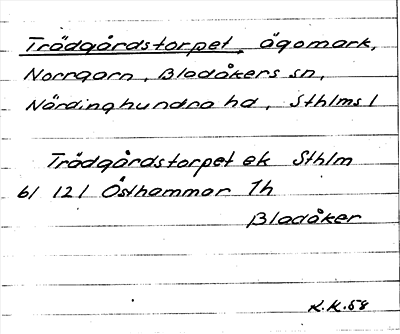 Trädgårdstorpet, ägomark,
Norrgarn, Bladåkers sn,
Närdinghundra hd, Sthlms l
Trädgårdstorpet ek Sthlm
61 121 Östhammar Th
Bladåker
K.K.58